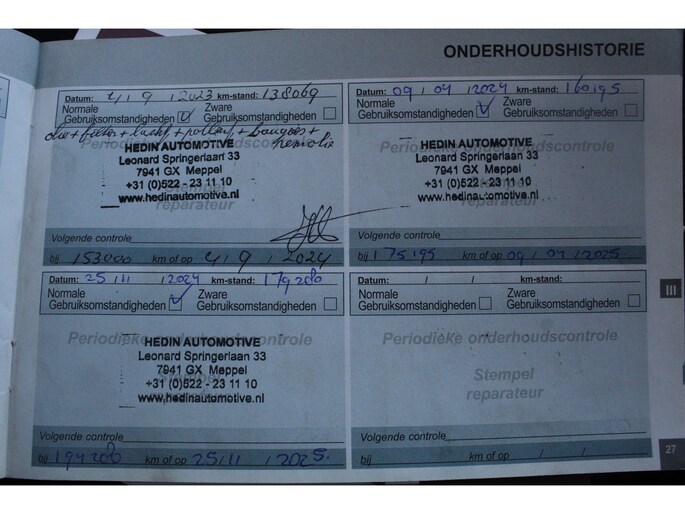 ONDERHOUDSHISTORIE
Datum: 4 / 9 / 2023 km-stand: 138069
Normale Gebruiksomstandigheden
Zware Gebruiksomstandigheden
olie + filter + lucht + pollenf + bougies +
remolie
Periodieke onderhoudscontrole
HEDIN AUTOMOTIVE
Leonard Springerlaan 33
7941 GX Meppel
+31 (0)522 - 23 11 10
www.hedinautomotive.nl
Stempel
reparateur
Volgende controle
bij 153000 km of op 4 / 9 / 2024
Datum: 09 / 04 / 2024 km-stand: 160195
Normale Gebruiksomstandigheden
Zware Gebruiksomstandigheden
Periodieke onderhoudscontrole
HEDIN AUTOMOTIVE
Leonard Springerlaan 33
7941 GX Meppel
+31 (0)522 - 23 11 10
www.hedinautomotive.nl
Stempel
reparateur
Volgende controle
bij 175195 km of op 09 / 04 / 2025
Datum: 25 / 11 / 2024 km-stand: 179280
Normale Gebruiksomstandigheden
Zware Gebruiksomstandigheden
Periodieke onderhoudscontrole
HEDIN AUTOMOTIVE
Leonard Springerlaan 33
7941 GX Meppel
+31 (0)522 - 23 11 10
www.hedinautomotive.nl
Stempel
reparateur
Volgende controle
bij 194280 km of op 25 / 11 / 2025.
Datum: / / km-stand:
Normale Gebruiksomstandigheden
Zware Gebruiksomstandigheden
Periodieke onderhoudscontrole
Stempel
reparateur
Volgende controle
bij km of op / /
III
27